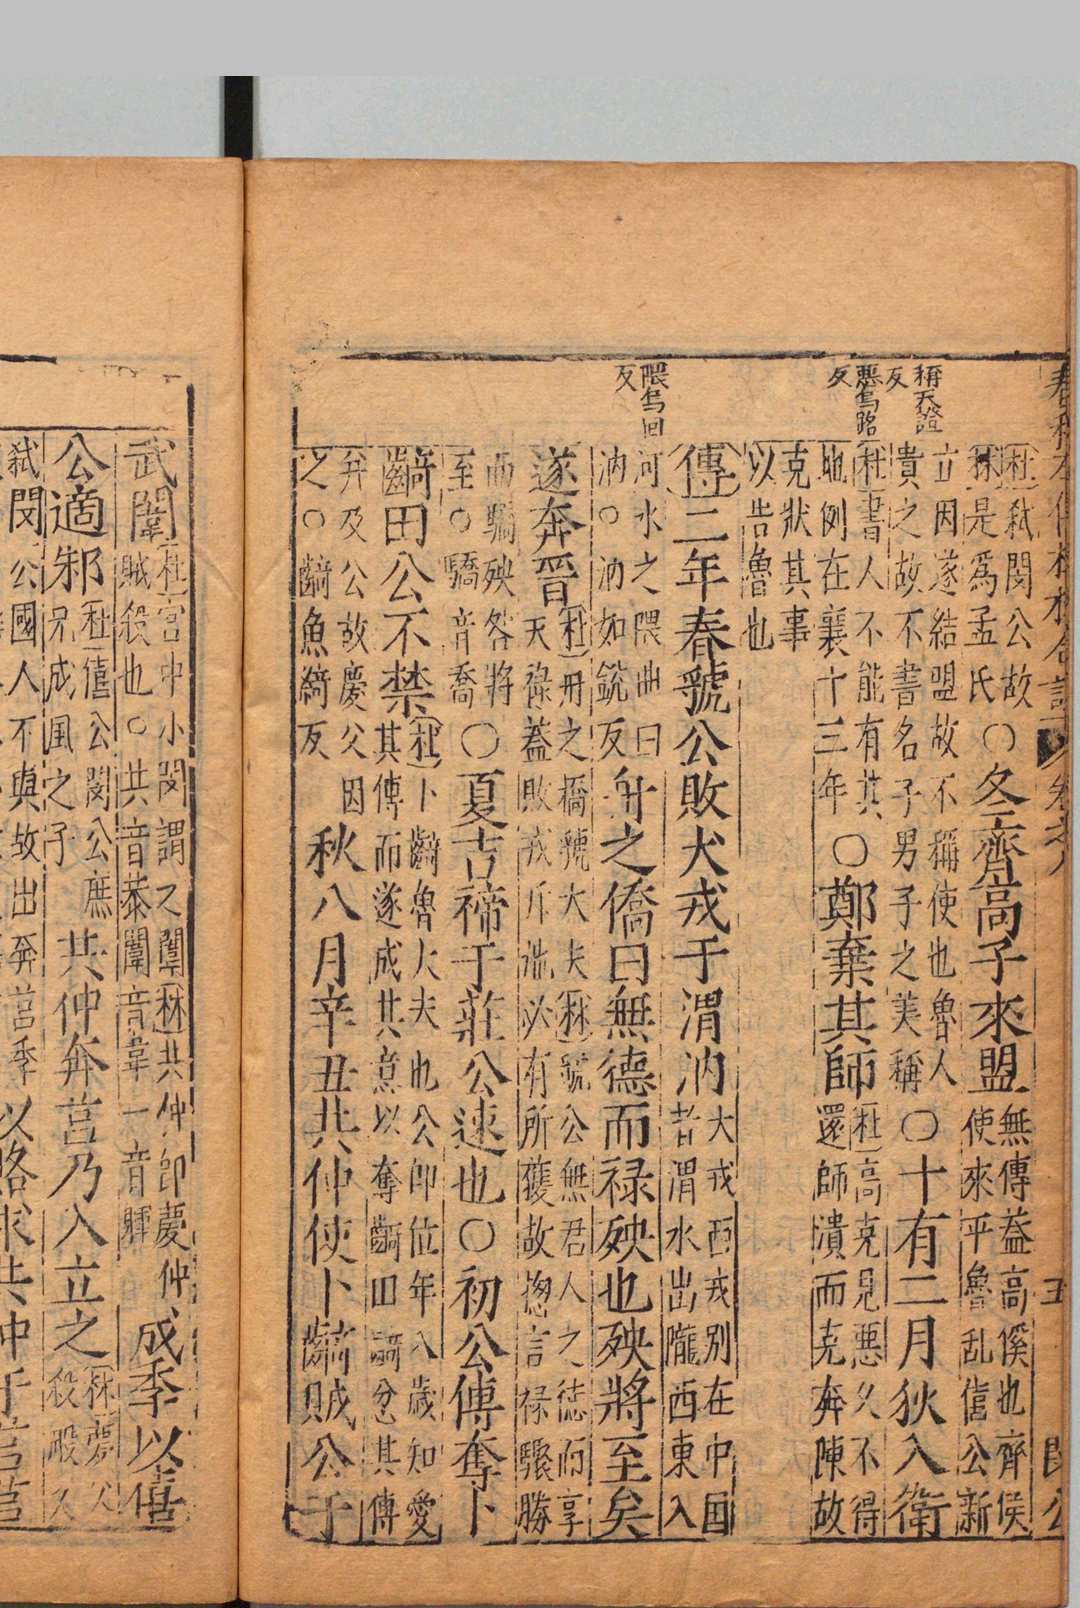 春秋左傳杜林合註 卷之八 五 閔公
稱尺證反
惡烏路反
隈烏回反
杜弑閔公故
林是爲孟氏〇冬齊高子來盟無傳蓋高傒也齊侯
使來平魯乱僖公新
立因遂結盟故不稱使也魯人
貴之故不書名子男子之美稱〇十有二月狄入衛
杜書人不能有其
地例在襄十三年〇鄭棄其師杜高克見惡久不得
還師潰而克奔陳故
克狀其事
以告魯也
傳二年春虢公敗犬戎于渭汭犬戎西戎别在中国
者渭水出隴西東入
河水之隈曲曰
汭〇汭如銳反舟之僑曰無德而禄殃也殃將至矣
遂奔晋杜舟之橋虢大夫林虢公無君人之徳而享
天禄蓋敗戎斥逃必有所獲故揔言禄驟勝
而驕殃咎將
至〇驕音喬〇夏吉禘于莊公速也〇初公傅奪卜
齮田公不禁杜卜齮魯大夫也公即位年八歳知愛
其傅而遂成其意以奪齮田齮忿其傅
并及公故慶父因
之〇齮魚綺反秋八月辛丑共仲使卜齮賊公于
武闈杜宫中小門謂之闈林共仲即慶仲
賊殺也〇共音恭闈音韋一音暉成季以僖
公適邾杜僖公閔公庶
兄成風之子共仲奔莒乃入立之林慶父
殺般又
弑閔公國人不與故出奔莒季以賂求共仲于莒莒